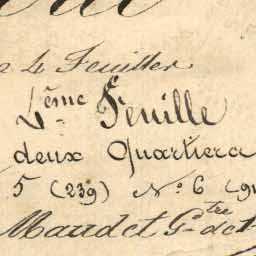 4 Feuilles
4ème Feuille
deux Quartiers
5 (239) N° 6 (9
Maudet G-tre de 1-